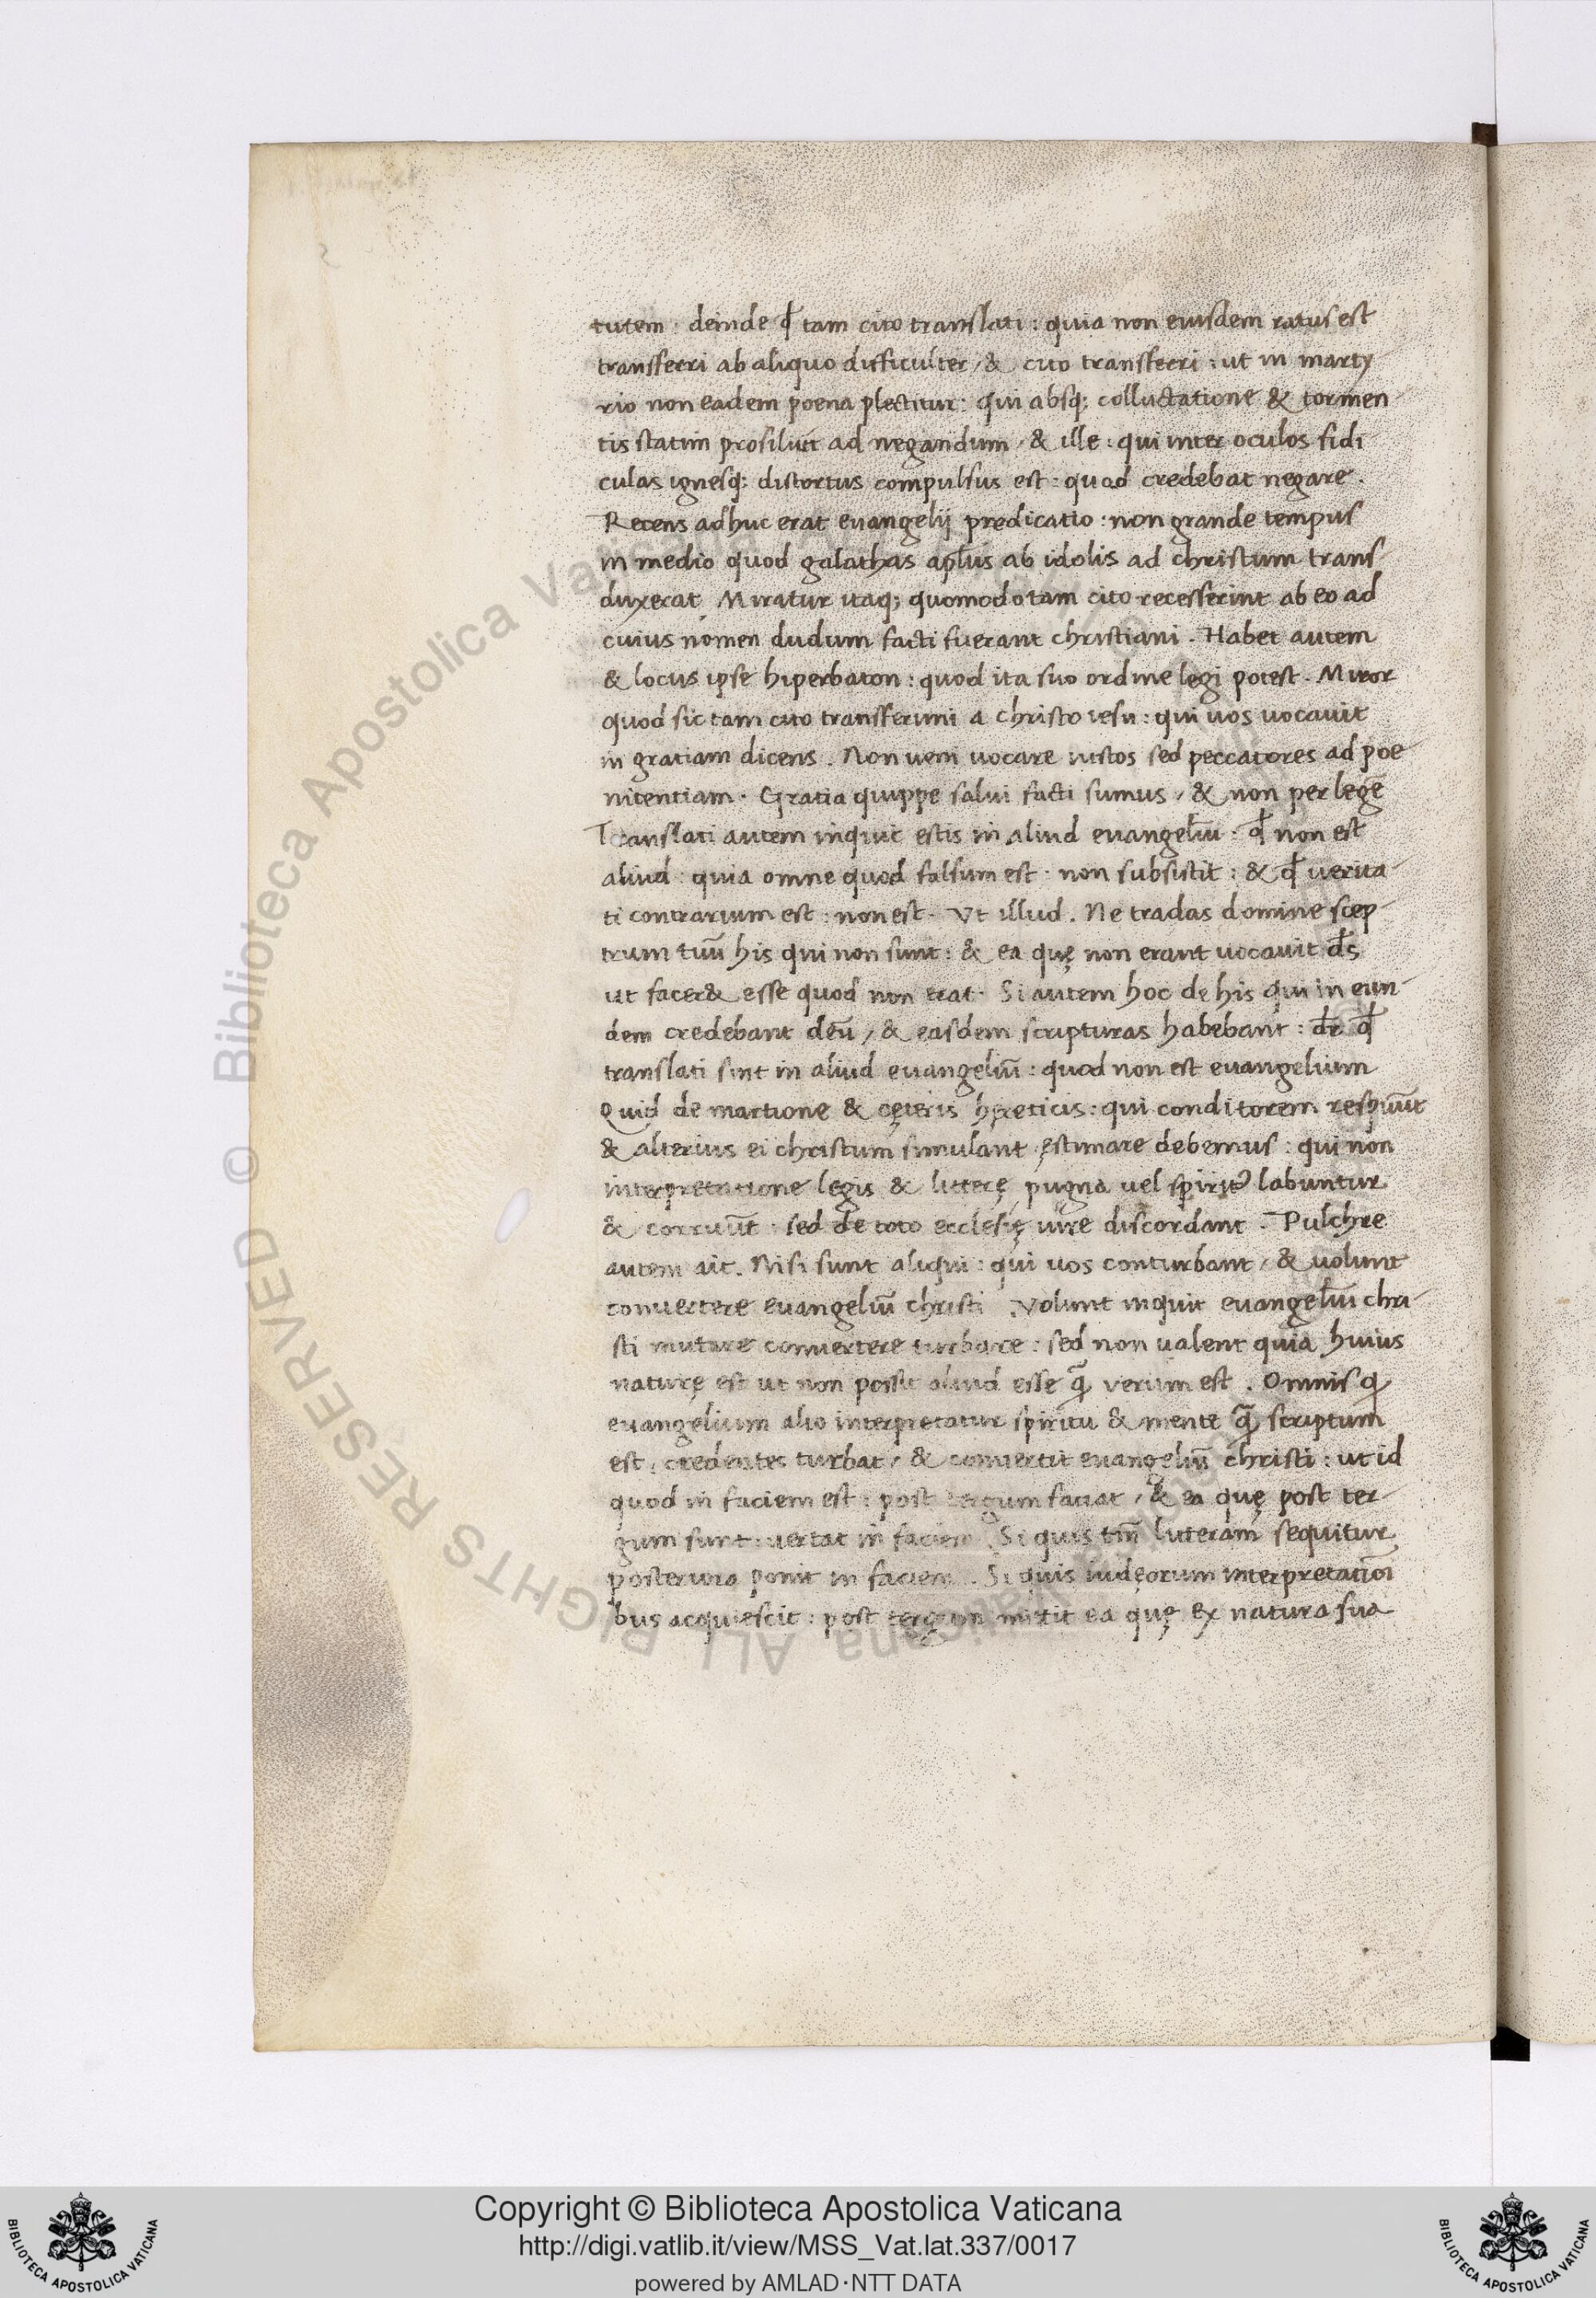 tutem : deinde ꝙ tam cito translati : quia non eiusdem ratus est
transferri ab aliquo difficulter / & cito transferri : ut in marty
rio non eadem poena plectitur : qui absq; colluctatione & tormen
tis statim prosiluit ad negandum / & ille : qui inter oculos fidi
culas ignesq; distortus compulsus est : quod credebat negare .
Recens adhuc erat euangelij predicatio : non grande tempus
in medio quod galathas apl̄us ab idolis ad christum trans
duxerat . Miratur itaq; quomodo tam cito recesserint ab eo ad
cuius nomen dudum facti fuerant christiani . Habet autem
& locus ipse hiperbaton : quod ita suo ordine legi potest . Miror
quod sic tam cito transferimi a christo iesu : qui uos uocauit
in gratiam dicens . Non ueni uocare iustos sed peccatores ad poe
nitentiam . Gratia quippe salui facti sumus / & non per legē
Translati autem inquit estis in aliud euangel̄iu . ꝙ non est
aliud : quia omne quod falsum est : non subsistit : & ꝙ uerita
ti contrarium est : non est . Vt illud . Ne tradas domine scep
trum tuū his qui non sunt : & ea quę non erant uocauit d̄s
ut facer& esse quod non erat . Si autem hoc de his qui in eun
dem credebant deū / & easdem scripturas habebant : dr̄ ꝙ
translati sint in aliud euangeliū : quod non est euangelium
Quid de martione & cęteris hęreticis : qui conditorem respuūt
& alterius ei christum simulant ęstimare debemus : qui non
interpretatione legis & litterę pugna uel spiritꝰ labuntur
& corruūt : sed de toto ecclesię iure discordant . Pulchre
autem ait . Nisi sunt aliqui : qui uos conturbant / & uolunt
conuertere euangeliū christi . Volunt inquit euangel̄iu chri
sti mutare conuertere turbare : sed non ualent quia huius
naturę est ut non possit aliud esse q̄ȝ verum est . Omnis ꝗ
euangelium alio interpretatur spiritu & mente q̄ȝ scriptum
est : credentes turbat / & conuertit euangeliū christi : ut id
quod in faciem est : post tergum faciat / & ea quę post ter
gum sunt : uertat in faciem . Si quis tm̄ litteram sequitur
posteriora ponit in faciem . Si quis iudęorum interpretatiōi
bus acquiescit : post tergum mittit ea quę ex natura sua
© Biblioteca Apostolica Vaticana ALL RIGHTS RESERVED
Copyright © Biblioteca Apostolica Vaticana
http://digi.vatlib.it/view/MSS_Vat.lat.337/0017
powered by AMLAD·NTT DATA
BIBLIOTECA APOSTOLICA VATICANA
BIBLIOTECA APOSTOLICA VATICANA